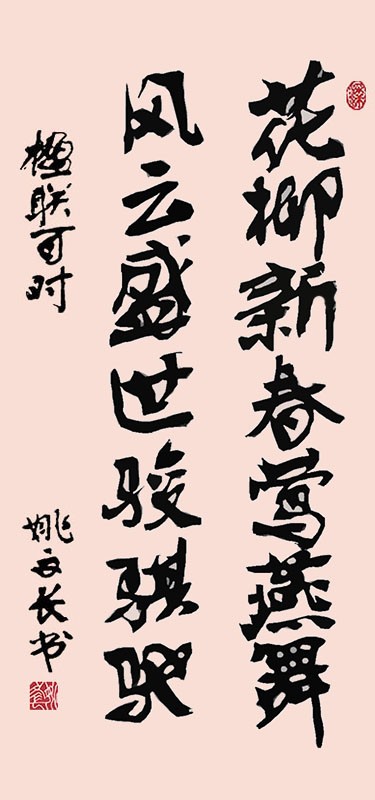 花柳新春莺燕舞
风云盛世骏骐驰
楹联
姚文长书